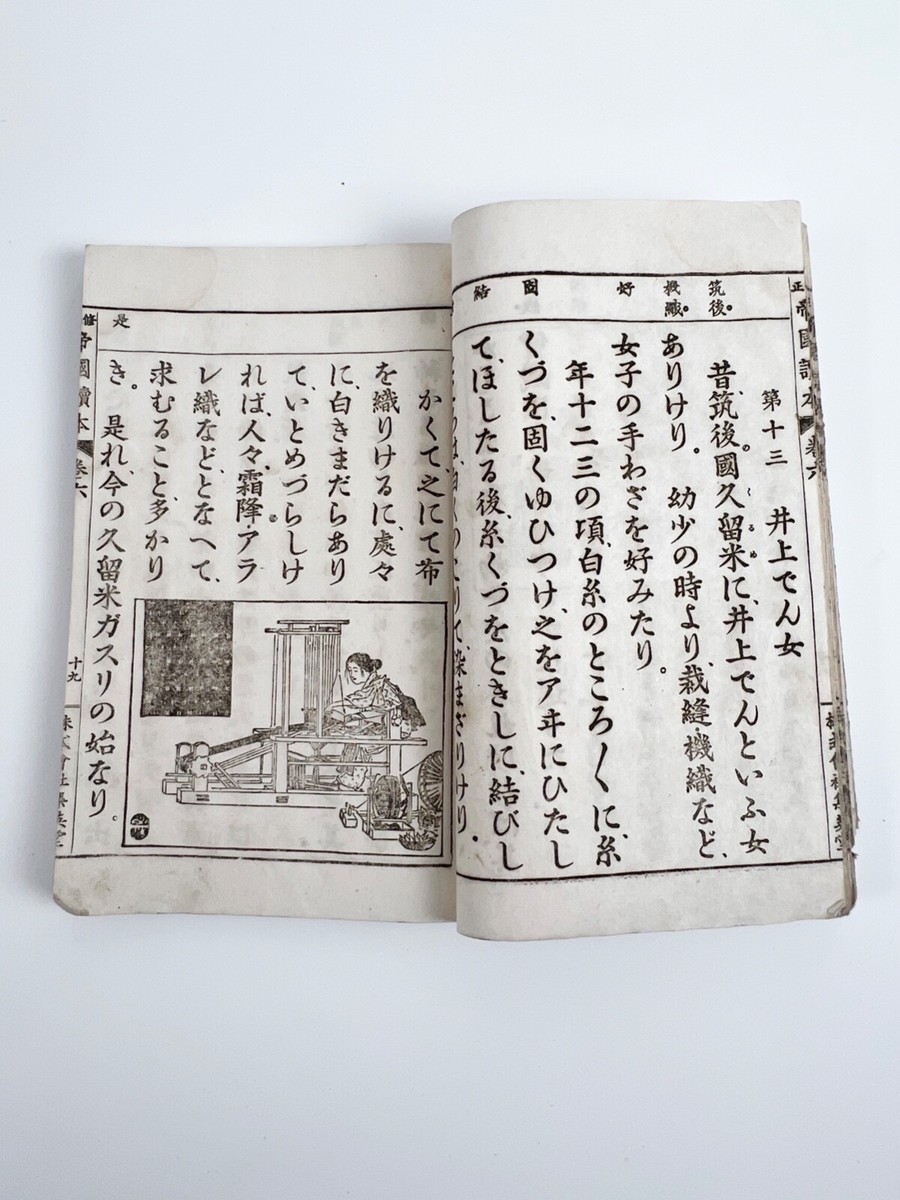 正
帝國讀本
卷六
筑後。
機織。
好
固
結
第十三 井上でん女
昔、筑後國久留米に、井上でんといふ女
ありけり。幼少の時より、裁縫・機織など、
女子の手わざを好みたり。
年十二三の項、白糸のところ〱に、糸
くづを、固くゆひつけ、之をアヰにひたし
て、ほしたる後、糸くづをときしに、結びし
染まざりけり
是
かくて、之にて布
を織りけるに、處々
に、白きまだらあり
て、いとめづらしけ
れば、人々、霜降・アラ
レ織など、となへて、
求むること、多かり
き。是れ、今の久留米ガスリの始なり。
修
帝國讀本
卷六
十九